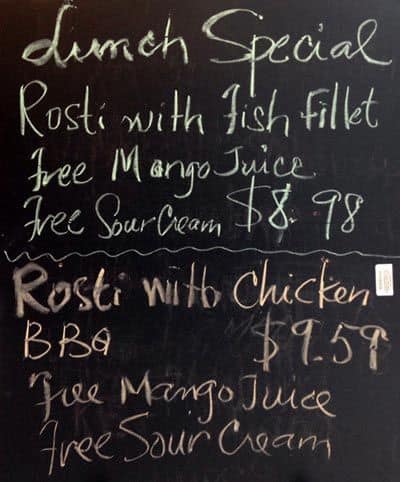 Lunch Special
Rosti with Fish Fillet
Free Mango Juice
Free Sour Cream $8.98
Rosti with Chicken
BBQ $9.59
Free Mango Juice
Free Sour Cream